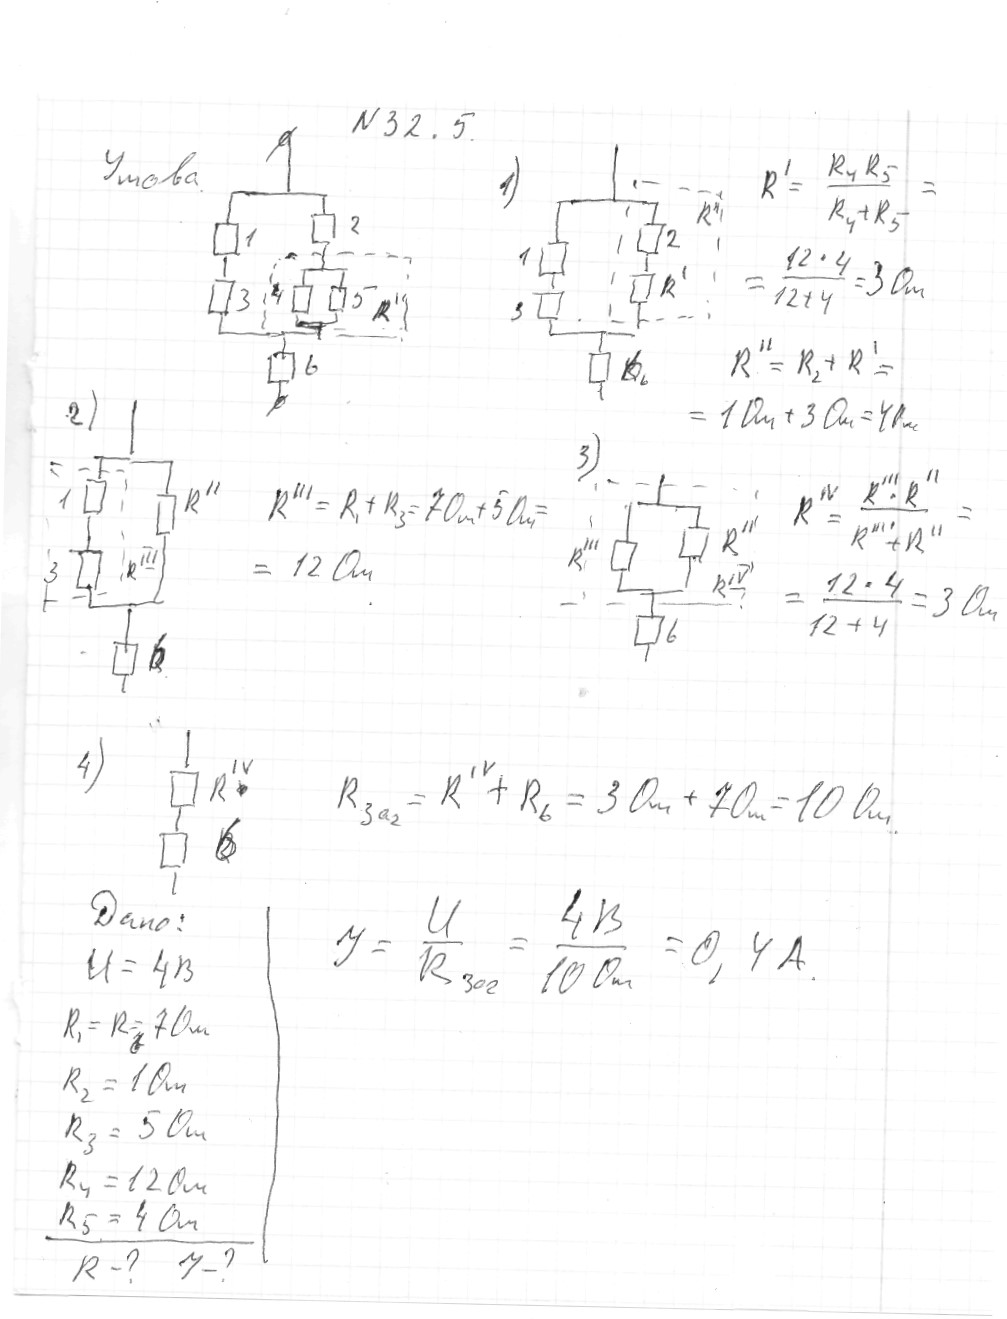 N32.5.
Умова.
1 2
3 4 5 R'
6
1)
R''
1 2
3 R'
6
R' = R₄R₅ / (R₄+R₅) =
= 12·4 / (12+4) = 3 Ом
R'' = R₂ + R' =
= 1 Ом + 3 Ом = 4 Ом
2)
1 R''
3 R'''
6
R''' = R₁ + R₃ = 7 Ом + 5 Ом =
= 12 Ом
3)
R''' R''
R^IV
6
R^IV = R'''·R'' / (R'''+R'') =
= 12·4 / (12+4) = 3 Ом
4)
R^IV
6
Rзаг = R^IV + R₆ = 3 Ом + 7 Ом = 10 Ом.
Дано:
U = 4В
R₁ = R = 7 Ом
R₂ = 1 Ом
R₃ = 5 Ом
R₄ = 12 Ом
R₅ = 4 Ом
R-? У-?
У = U / Rзаг = 4В / 10 Ом = 0,4А.